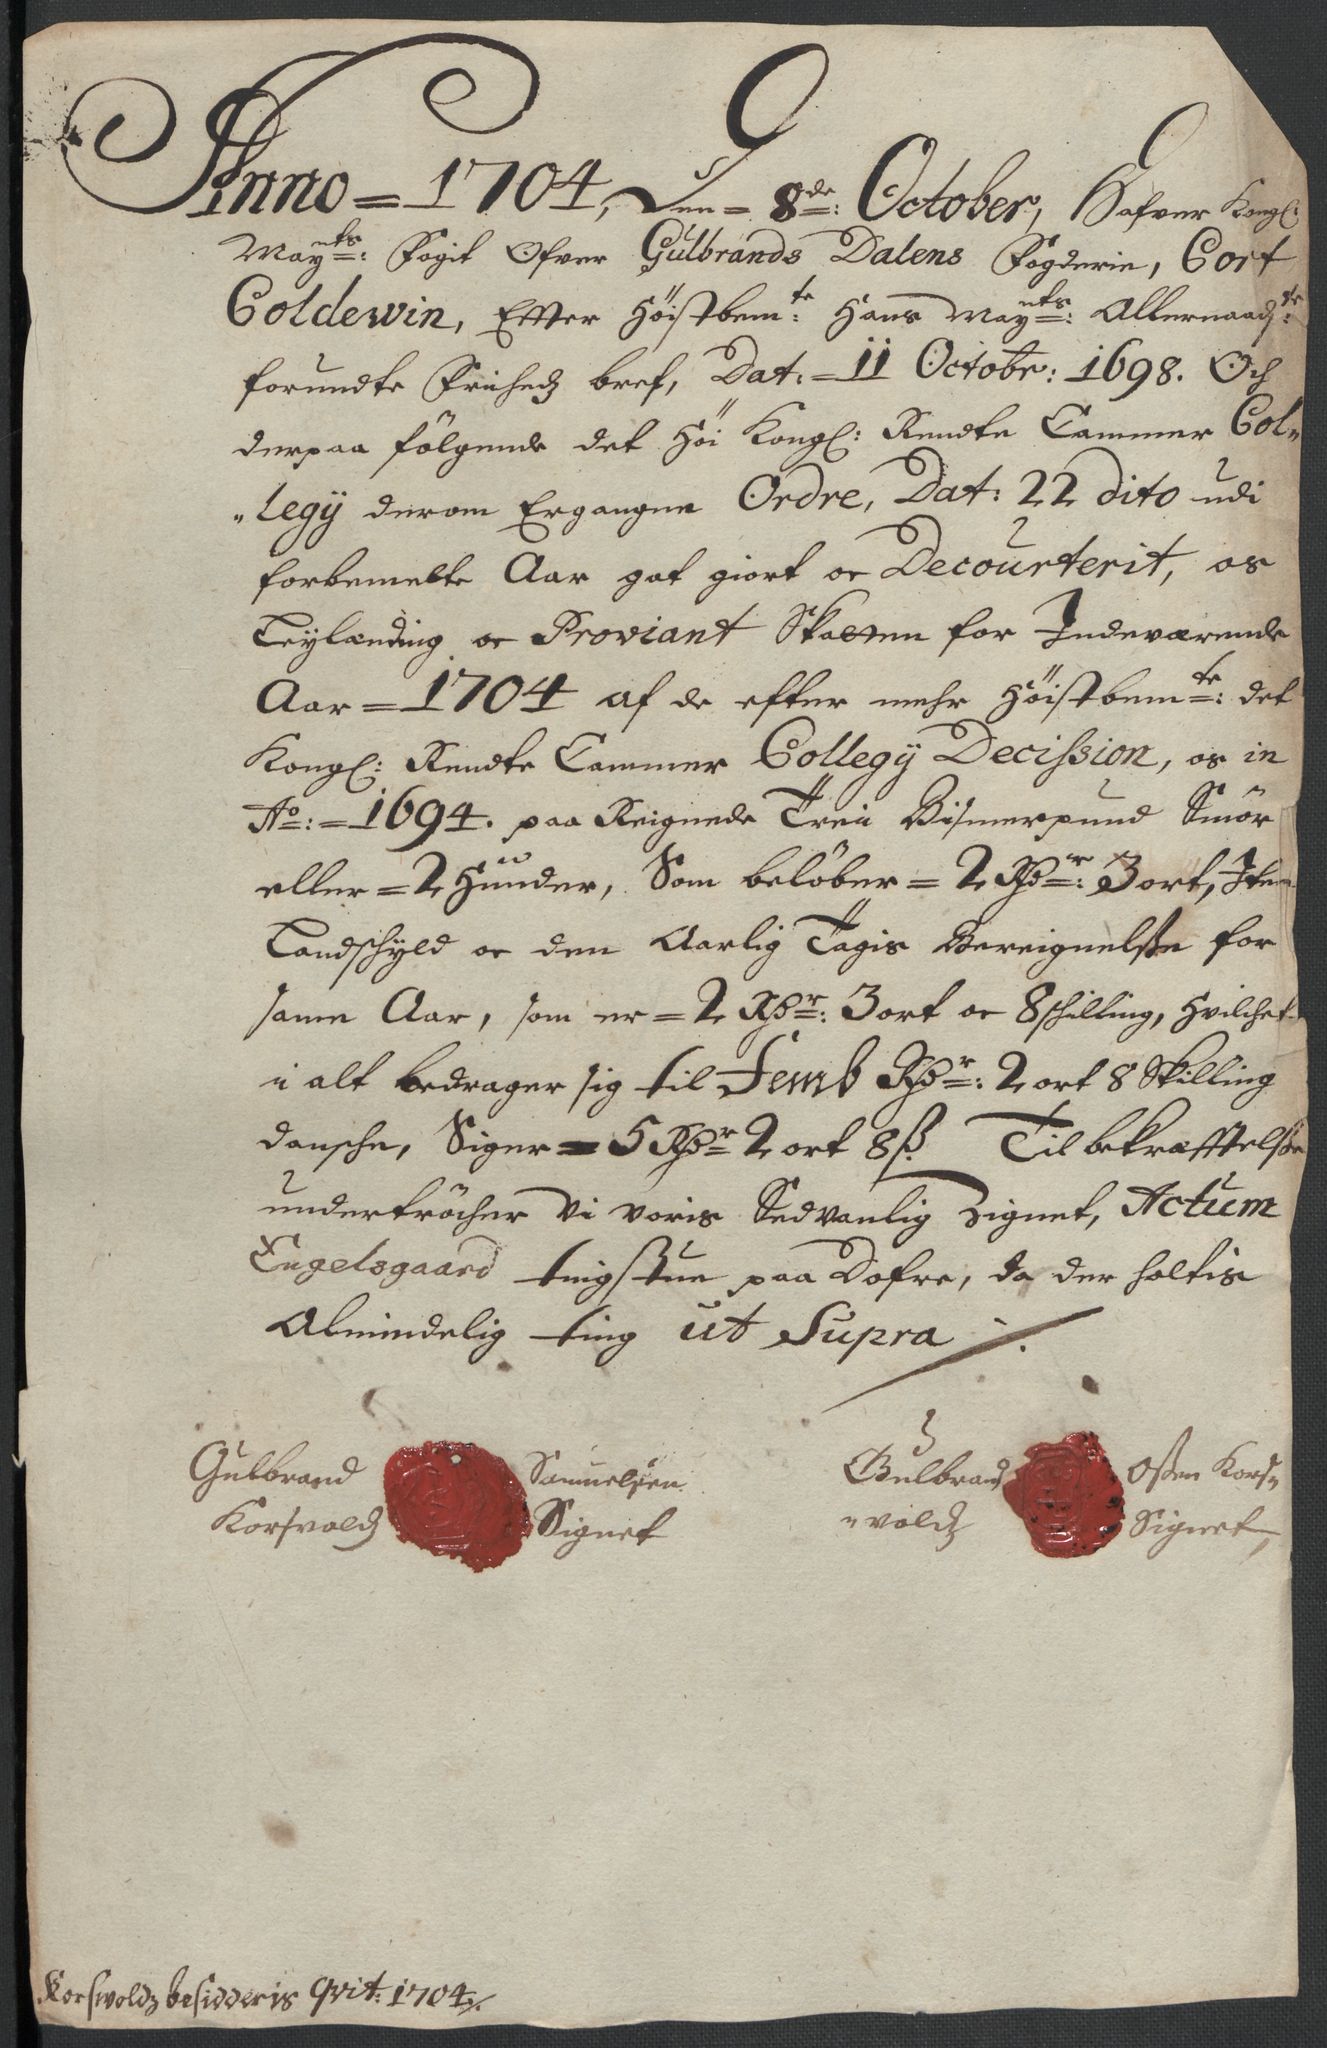 Anno = 1704, Den = 8de: October, Hafver Kongl:
Mayts: Fogit Ofver Gulbrands Dalens Fogderie, Cort
Coldewin, Effter Höistbemte: Hans Mayts: Allernaadste:
forundte Friheds bref, Dat: = 11 Octobr: 1698. Och
derpaa fölgende det Höi Kongl: Rendte Cammer Col„
„legij derom Ergangne Ordre, Dat: 22 dito udi
forbemelte Aar gat giort oc Decourterit, os
Leylænding oc Proviant Skatten for Indeværende
Aar = 1704 af de efter mehr Höistbemte: det
Kongl: Rendte Cammer Collegij Decission, os in
Ao: = 1694. paa Reignede Trei Bismerpund Smör
eller = 2 Hunder, Som belöber = 2 Rdr: 3 ort, Item
Landschyld oc den Aarlig Tagis Bereignelsse for
samme Aar, som er = 2 Rdr: 3 ort oc 8 schilling, Hvilchet
i alt bedrager sig til Femb Rdr: 2 ort 8 Skilling
dansche, Siger = 5 Rdr 2 ort 8 ß. Til bekræfftelsse
undertröcher Vi voris Sedvanlig Zignet, Actum
Engelsgaard tingstue paa Dofre, da der holtis
Almindelig ting ut Supra ./.
Gulbrand Samuelsen Gulbrand Ossen Kors„
Korsvolds Signet „volds Signet,
Korswolds besidderis Qvit: 1704 ./.